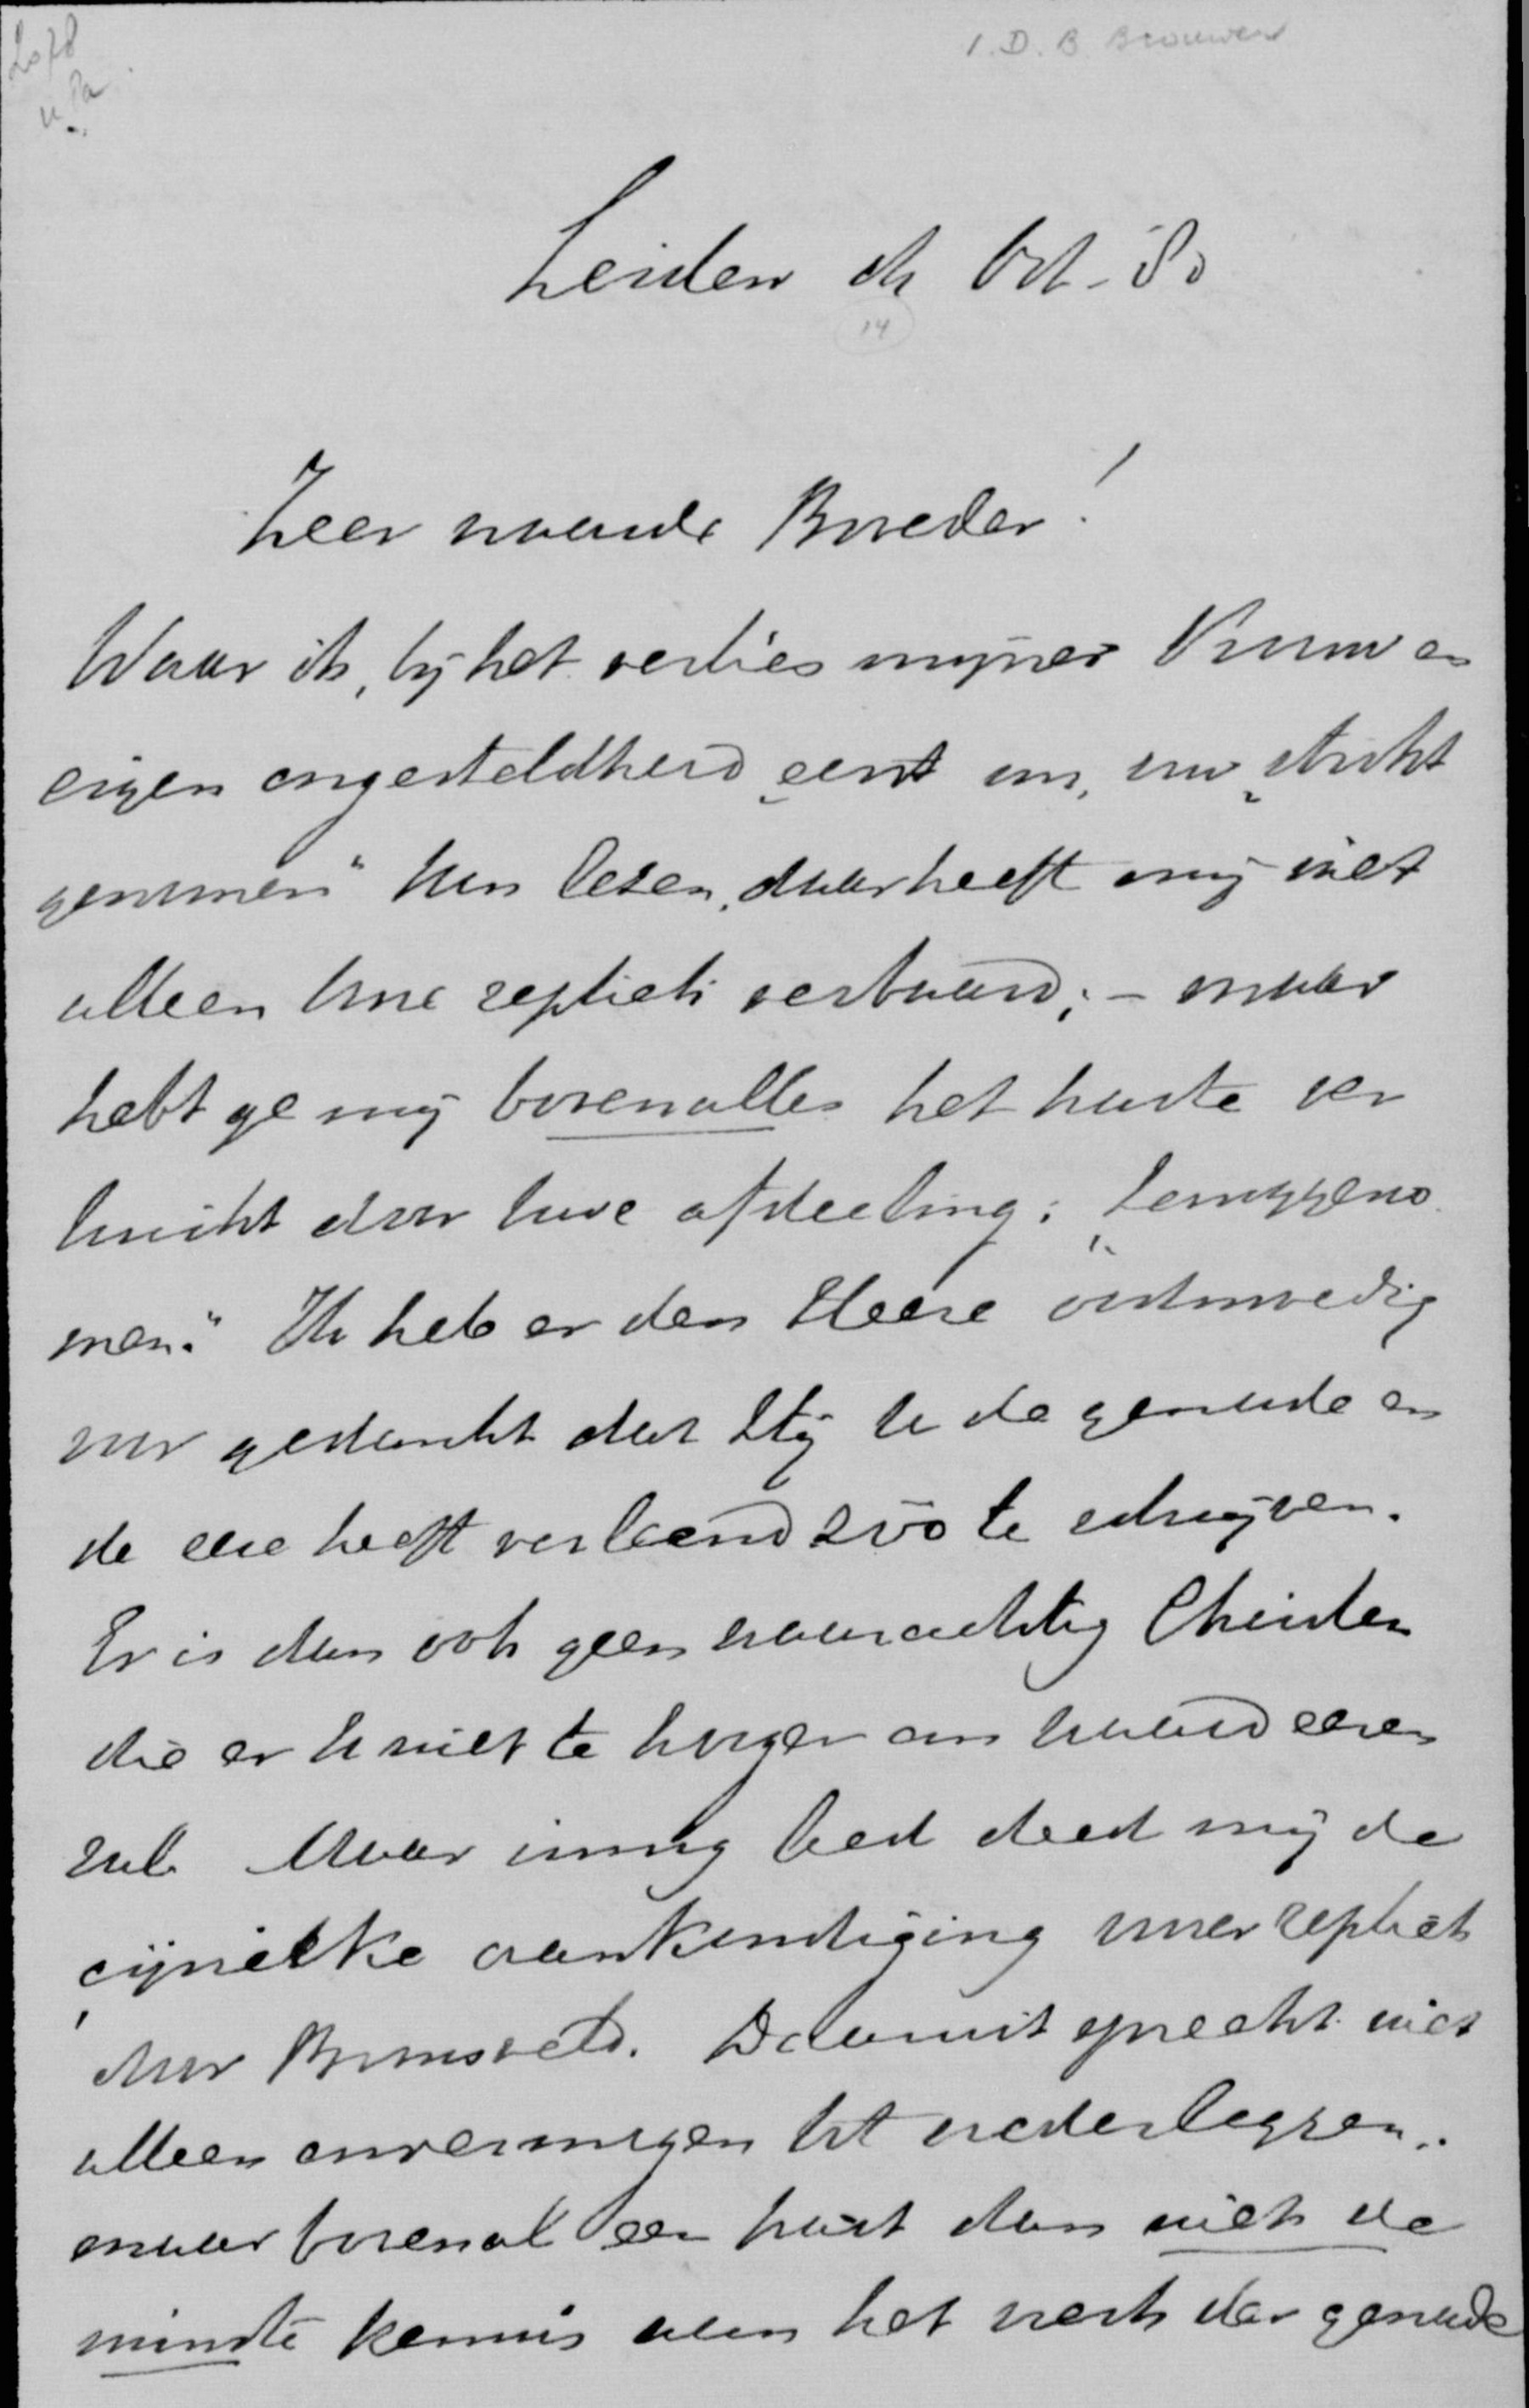 2078
I.D.B. Brouwer
Leiden Oct. 80
14
Zeer waarde Broeder!
Waar ik, bij het verlies mijner Vrouw en
eigen ongesteldheid eerst nu, uw „Strikt
genomen" kon lezen, daar heeft mij niet
alleen Uwe repliek verbaasd; – maar
hebt ge mij bovenalles het harte ver
kwikt door Uwe afdeeling: „Teruggeno
men." Ik heb er den Heere ootmoedig
voor gedankt dat Hij U de genade en
de eere heeft verleend zóó te schrijven.
Er is dan ook geen waarachtig Christen
die er U niet te hooger om waardeeren
zal. Maar innig leed deed mij de
cijnieke aankondiging uwer repliek
door Bronsveld. Daaruit spreekt niet
alleen onvermogen tot wederleggen..
maar bovenal een hart dan niet de
minste kennis aan het werk der genade